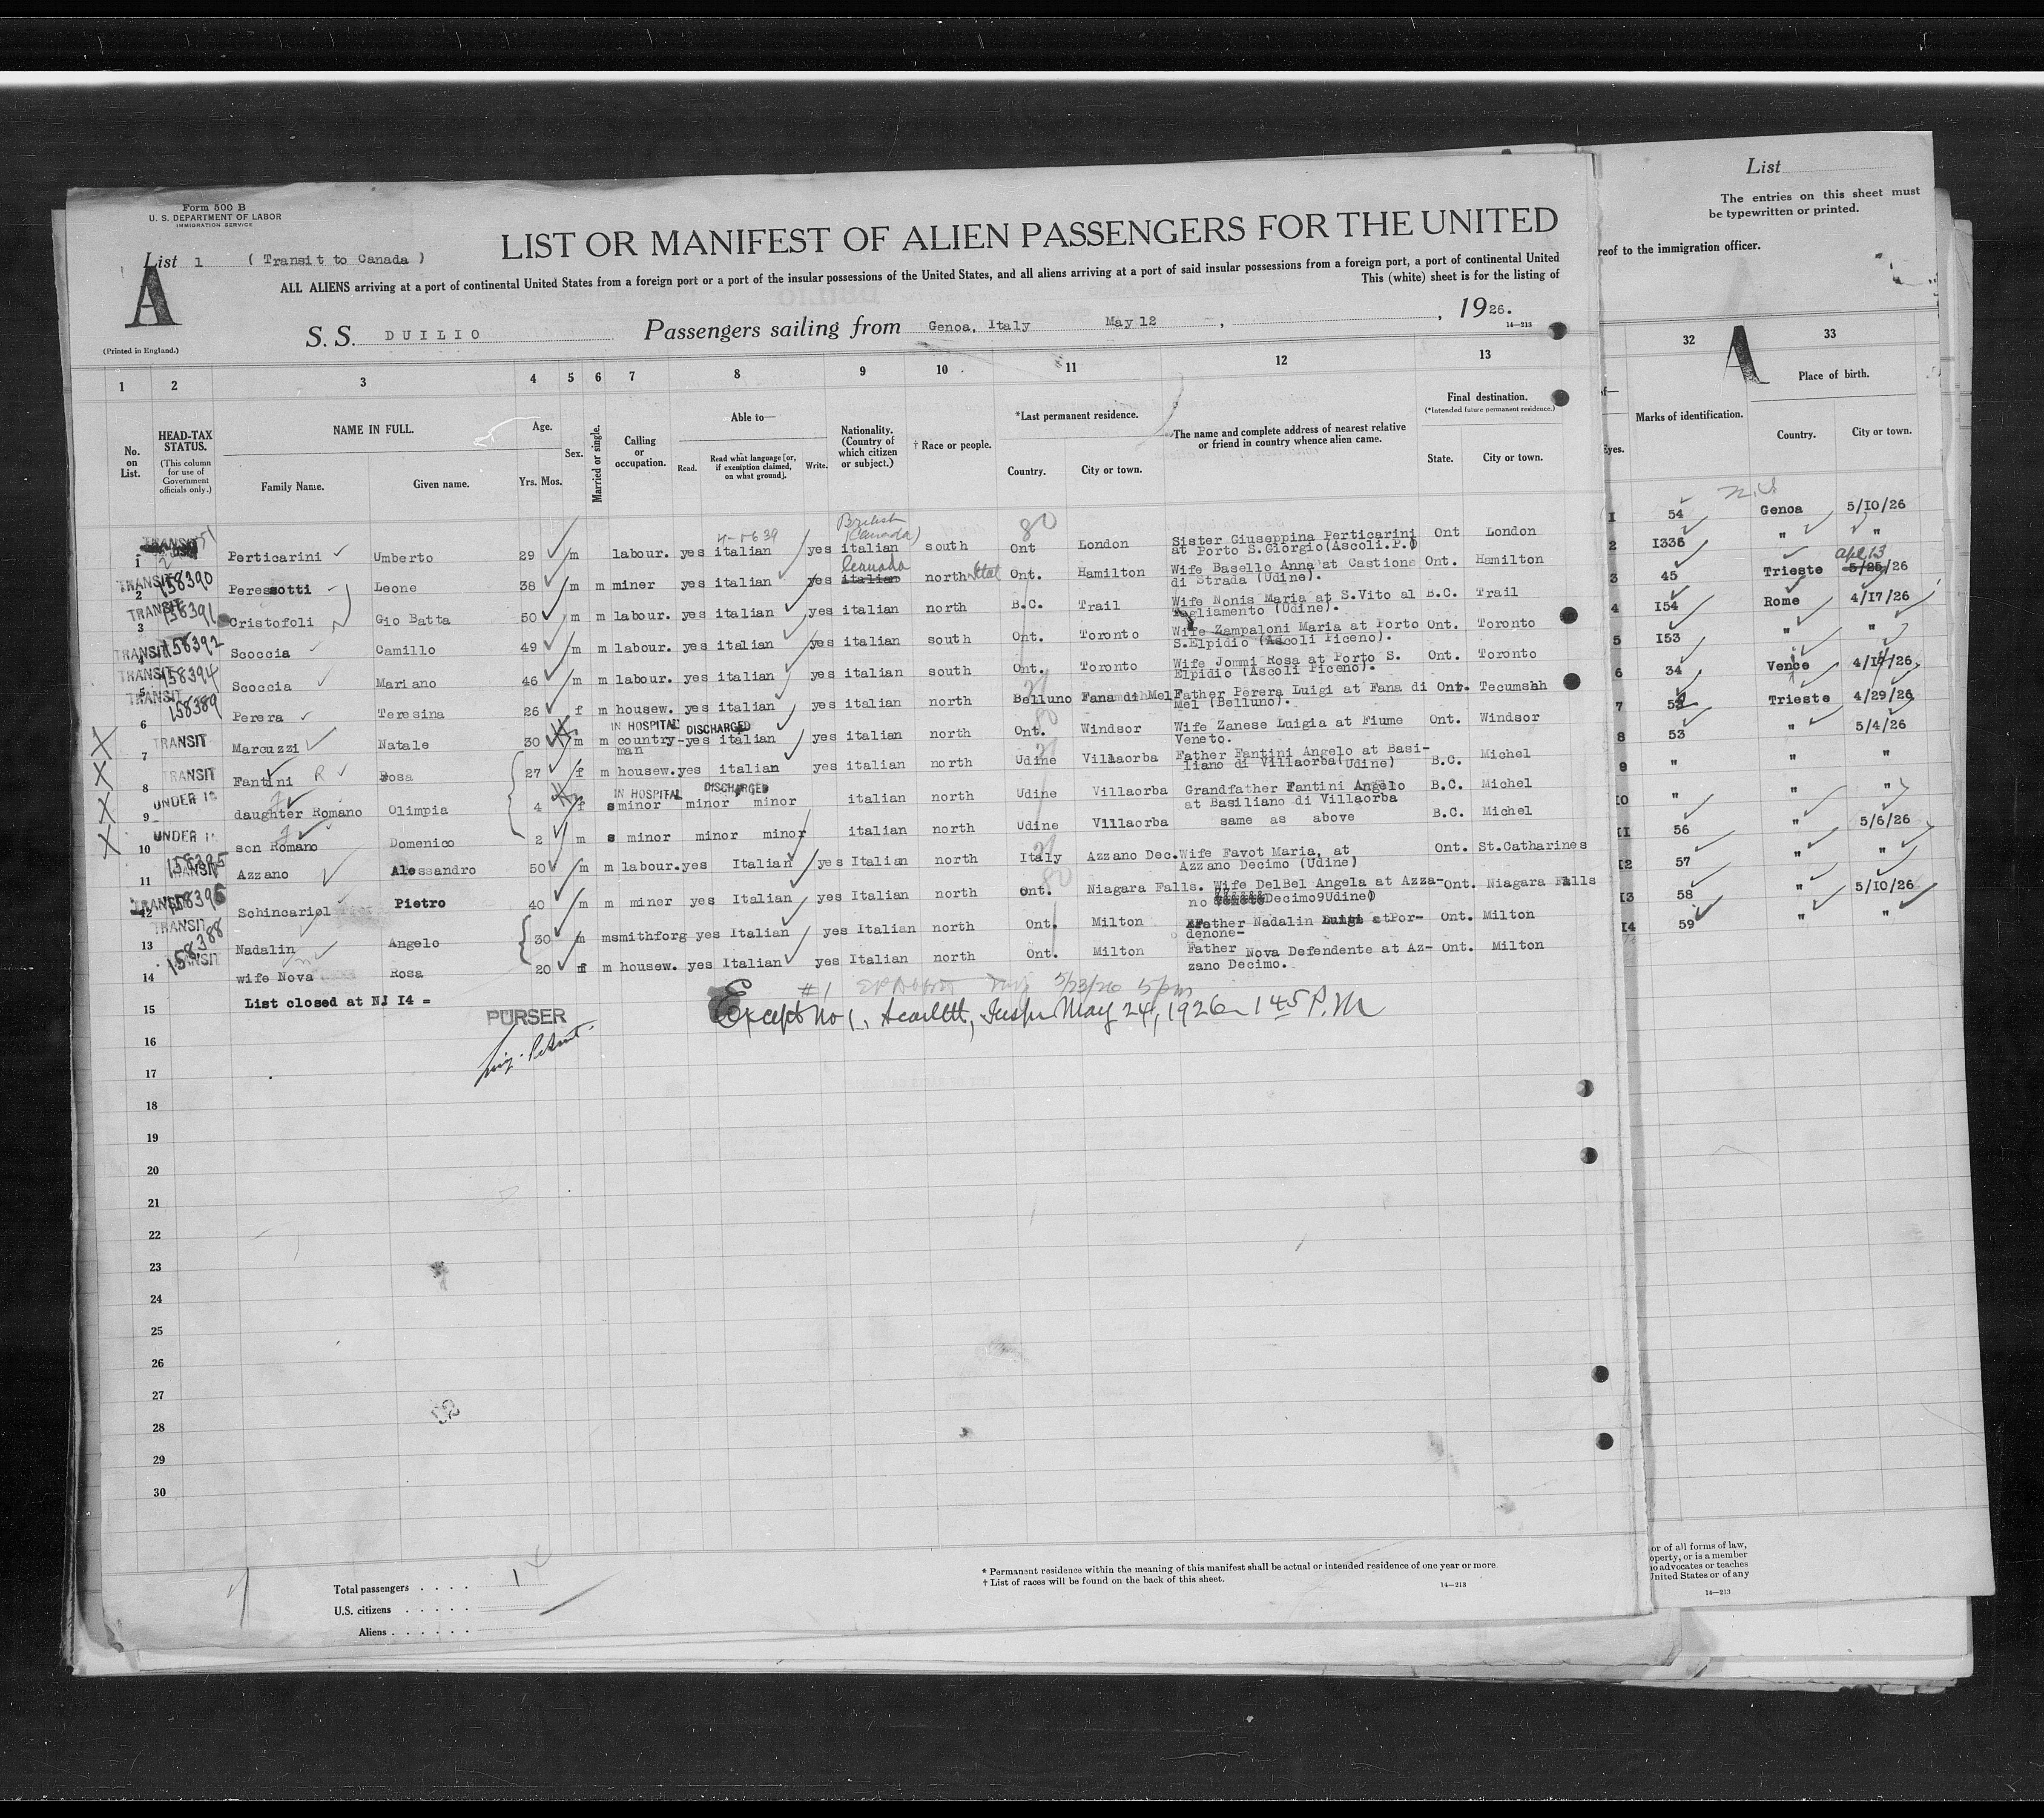 Form 500 B
U. S. DEPARTMENT OF LABOR
IMMIGRATION SERVICE
List 1 ( Transit to Canada )
A
(Printed in England.)
LIST OR MANIFEST OF ALIEN PASSENGERS FOR THE UNITED
ALL ALIENS arriving at a port of continental United States from a foreign port or a port of the insular possessions of the United States, and all aliens arriving at a port of said insular possessions from a foreign port, a port of continental United
This (white) sheet is for the listing of
S. S. DUILIO Passengers sailing from Genoa, Italy May 12 , , 1926.
14—213
1 2 3 4 5 6 7 8 9 10 11 12 13
No. on List.
HEAD-TAX STATUS. (This column for use of Government officials only.)
NAME IN FULL. Family Name. Given name.
Age. Yrs. Mos.
Sex.
Married or single.
Calling or occupation.
Able to— Read. Read what language [or, if exemption claimed, on what ground]. Write.
Nationality. (Country of which citizen or subject.)
† Race or people.
*Last permanent residence. Country. City or town.
The name and complete address of nearest relative or friend in country whence alien came.
Final destination. (*Intended future permanent residence.) State. City or town.
4-5639 British (Canada) 80
1 TRANSIT Perticarini Umberto 29 m labour. yes italian yes italian south Ont London Sister Giuseppina Perticarini at Porto S.Giorgio(Ascoli.P.) Ont London
Canada
2 TRANSIT 158390 Peressotti Leone 38 m m miner yes italian yes italian north Ont. Hamilton Wife Basello Anna at Castions di Strada (Udine). Ont. Hamilton
3 TRANSIT 158391 Cristofoli Gio Batta 50 m m labour. yes italian yes italian north B.C. Trail Wife Nonis Maria at S.Vito al Tagliamento (Udine). B.C. Trail
4 TRANSIT 158392 Scoccia Camillo 49 m m labour. yes italian yes italian south Ont. Toronto Wife Zampaloni Maria at Porto S.Elpidio (Ascoli Piceno). Ont. Toronto
5 TRANSIT 158394 Scoccia Mariano 46 m m labour. yes italian yes italian south Ont. Toronto Wife Jommi Rosa at Porto S. Elpidio (Ascoli Piceno). Ont. Toronto
6 TRANSIT 158389 Perera Teresina 26 f m housew. yes italian yes italian north Belluno Fana di Mel Father Perera Luigi at Fana di Mel (Belluno). Ont. Tecumseh
IN HOSPITAL DISCHARGED 80
7 TRANSIT Marcuzzi Natale 30 m m country-man yes italian yes italian north Ont. Windsor Wife Zanese Luigia at Fiume Veneto. Ont. Windsor
8 TRANSIT Fantini R Rosa 27 f m housew. yes italian yes italian north Udine Villaorba Father Fantini Angelo at Basiliano di Villaorba(Udine) B.C. Michel
IN HOSPITAL DISCHARGED
9 UNDER 16 daughter Romano Olimpia 4 f s minor minor minor italian north Udine Villaorba Grandfather Fantini Angelo at Basiliano di Villaorba B.C. Michel
10 UNDER 16 son Romano Domenico 2 m s minor minor minor italian north Udine Villaorba same as above B.C. Michel
11 158395 TRANSIT Azzano Alessandro 50 m m labour. yes Italian yes Italian north Italy Azzano Dec. Wife Favot Maria, at Azzano Decimo (Udine) Ont. St.Catharines
80
12 TRANSIT 158396 Schincariol Pietro 40 m m miner yes Italian yes Italian north Ont. Niagara Falls. Wife DelBel Angela at Azza-no Decimo9Udine) Ont. Niagara Falls
13 TRANSIT Nadalin Angelo 30 m m smithforg yes Italian yes Italian north Ont. Milton Father Nadalin Luigi at Por-denone- Ont. Milton
14 158388 TRANSIT wife Nova Rosa 20 f m housew. yes Italian yes Italian north Ont. Milton Father Nova Defendente at Az-zano Decimo. Ont. Milton
#1 5/23/26 5 pm
15 List closed at N. 14 =
PURSER
Except No 1, Scarlett, Insp. May 24, 1926 145 P.M
16
17
18
19
20
21
22
23
24
25
26
27
28
29
30
Total passengers . . . . 14
U.S. citizens . . . . .
Aliens . . . . . .
* Permanent residence within the meaning of this manifest shall be actual or intended residence of one year or more.
† List of races will be found on the back of this sheet.
14—213
List
The entries on this sheet must be typewritten or printed.
reof to the immigration officer.
A
32 33
Eyes. Marks of identification. Place of birth. Country. City or town.
1 54 Genoa 5/10/26
2 1336 " "
3 45 Trieste 5/25/26 Apl 13
4 154 Rome 4/17/26
5 153 " "
6 34 Vence 4/14/26
7 52 Trieste 4/29/26
8 53 " 5/4/26
9 " " "
10 " " "
11 56 " 5/6/26
12 57 " "
13 58 " 5/10/26
14 59 " "
or of all forms of law,
operty, or is a member
o advocates or teaches
United States or of any
14—213